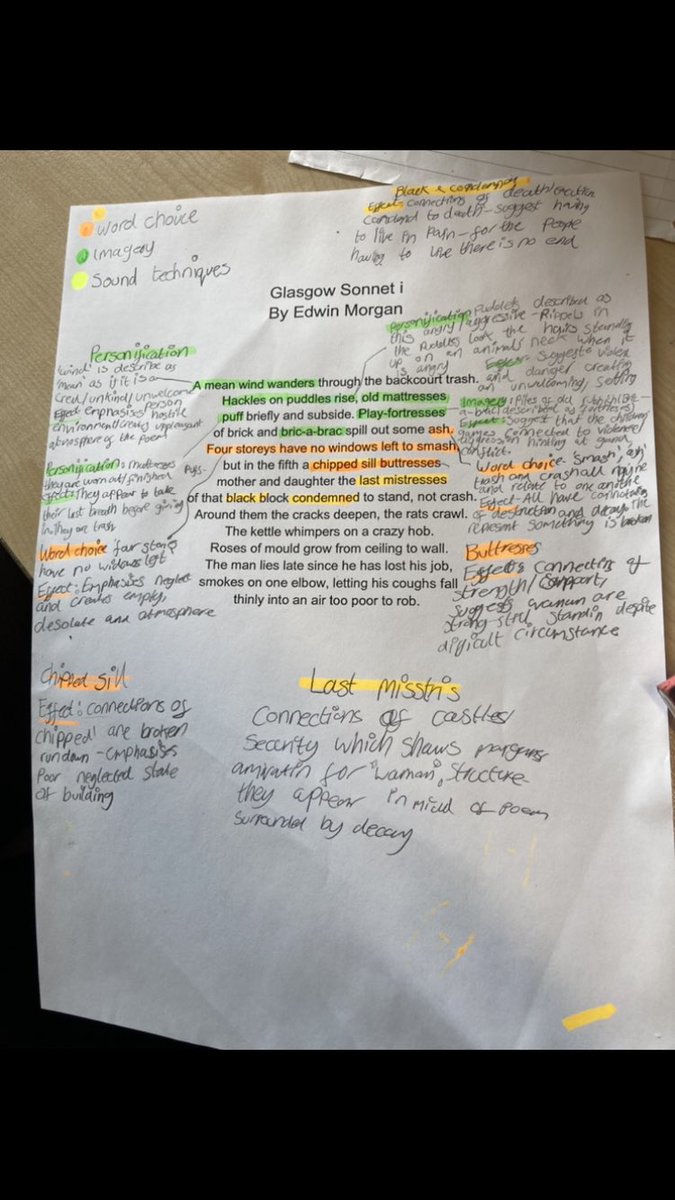 Word choice
Imagery
Sound techniques
Black & condemned
Effect: Connections of death/execution
Condemd to death - suggest having
to live in Pain - for the People
having to live there is no end
Glasgow Sonnet i
By Edwin Morgan
Personification
'wind' is describe as
'mean' as if it is a
cruel/unkind/unwelcome
person
Effect: emphasises hostile
environment/creates unpleasant
atmosphere of the Poem
Personification Puddles described as
this angry/aggressive - Rippels in
the Puddles look the hairs standing
up on an animals neck when it
is angry
Effect: Suggests violence
and danger creating
an unwelcoming setting
Imagery: Piles of old rubbish/bric-
a-brac described as 'fortresses'
Effect: Suggest that the children
games connected to violence/
aggression hinting at
conflict.
Word choice - 'Smash', 'ash'
trash and crash all rhyme
and relate to one another
Effect - All have connotations
of destruction and decay. The
represnt something is broken
A mean wind wanders through the backcourt trash.
Hackles on puddles rise, old mattresses
puff briefly and subside. Play-fortresses
of brick and bric-a-brac spill out some ash.
Four storeys have no windows left to smash,
but in the fifth a chipped sill buttresses
mother and daughter the last mistresses
of that black block condemned to stand, not crash.
Around them the cracks deepen, the rats crawl.
The kettle whimpers on a crazy hob.
Roses of mould grow from ceiling to wall.
The man lies late since he has lost his job,
smokes on one elbow, letting his coughs fall
thinly into an air too poor to rob.
Personification: mattresses Puffs-
they are worn out/finished
Effect: They appear to take
their last breath before giving
in. They are trash
Word choice four storeys
have no windows left
Effect: Emphasises neglect
and creates empty,
desolate and atmosphere
Buttresses
Effect: Connections of
strength/support,
suggests woman are
strong - still standin depite
difficult circumstance
Chipped Sill
Effect: connections of
'chipped' are broken
rundown - emphasises
Poor neglected state
of building
Last Misstris
Connections of castles/
Security which shaws morgans
amiratin for 'woman', Structure
they appear in midd of Poem
Surronded by decay